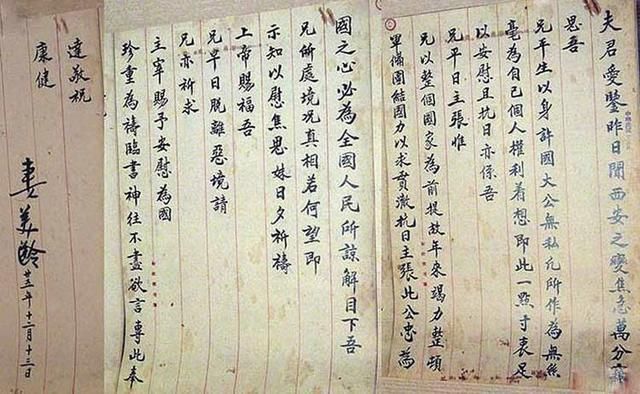 夫君愛鑒昨日聞西安之變焦急萬分竊
思吾
兄平生以身許國大公無私凡所作為無絲
毫為自己個人權利着想即此一點寸衷足
以安慰且抗日亦係吾
兄平日主張惟
兄以整個國家為前提故年來竭力整頓
軍備團結國力以求貫澈抗日主張此公忠為
國之心必為全國人民所諒解目下吾
兄所處境況真相若何望即
示知以慰焦思妹日夕祈禱
上帝賜福吾
兄早日脫離惡境請
兄亦祈求
主宰賜予安慰為國
珍重為禱臨書神往不盡欲言專此奉
達敬祝
康健
妻美齡
廿五年十二月十三日